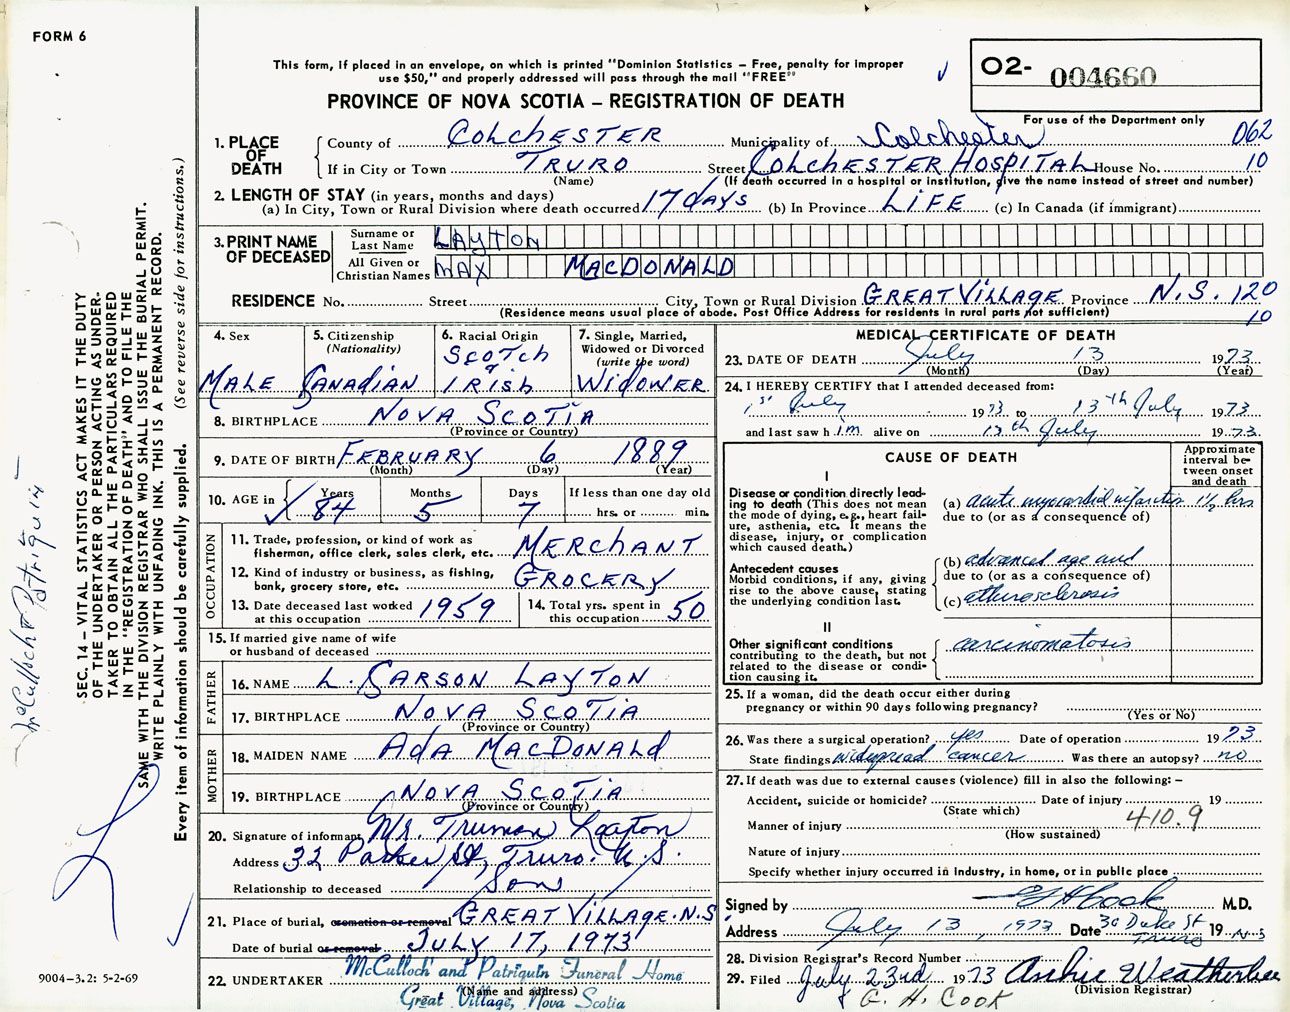 FORM 6
This form, if placed in an envelope, on which is printed "Dominion Statistics – Free, penalty for improper
use $50," and properly addressed will pass through the mail "FREE"
O2- 004660
PROVINCE OF NOVA SCOTIA – REGISTRATION OF DEATH
For use of the Department only
1. PLACE OF DEATH
County of COLCHESTER Municipality of Colchester 062
If in City or Town TRURO Street COLCHESTER HOSPITAL House No. 10
(Name) (If death occurred in a hospital or institution, give the name instead of street and number)
2. LENGTH OF STAY (in years, months and days)
(a) In City, Town or Rural Division where death occurred 17 days (b) In Province LIFE (c) In Canada (if immigrant)
3. PRINT NAME OF DECEASED
Surname or Last Name LAYTON
All Given or Christian Names MAX MACDONALD
RESIDENCE No. Street City, Town or Rural Division GREAT VILLAGE Province N.S. 120
(Residence means usual place of abode. Post Office Address for residents in rural parts not sufficient) 10
4. Sex MALE
5. Citizenship (Nationality) CANADIAN
6. Racial Origin SCOTCH & IRISH
7. Single, Married, Widowed or Divorced (write the word) WIDOWER
8. BIRTHPLACE NOVA SCOTIA
(Province or Country)
9. DATE OF BIRTH FEBRUARY 6 1889
(Month) (Day) (Year)
10. AGE in Years 84 Months 5 Days 7 If less than one day old
hrs. or min.
OCCUPATION
11. Trade, profession, or kind of work as
fisherman, office clerk, sales clerk, etc. MERCHANT
12. Kind of industry or business, as fishing,
bank, grocery store, etc. GROCERY
13. Date deceased last worked
at this occupation 1959
14. Total yrs. spent in
this occupation 50
15. If married give name of wife
or husband of deceased
FATHER
16. NAME L. CARSON LAYTON
17. BIRTHPLACE NOVA SCOTIA
(Province or Country)
MOTHER
18. MAIDEN NAME ADA MACDONALD
19. BIRTHPLACE NOVA SCOTIA
(Province or Country)
20. Signature of informant Mr. Truman Layton
Address 32 Parker St, Truro. N.S.
Relationship to deceased Son
21. Place of burial, cremation or removal GREAT VILLAGE. N.S.
Date of burial or removal JULY 17, 1973
22. UNDERTAKER McCulloch and Patriquin Funeral Home
(Name and address)
Great Village, Nova Scotia
MEDICAL CERTIFICATE OF DEATH
23. DATE OF DEATH July 13 1973
(Month) (Day) (Year)
24. I HEREBY CERTIFY that I attended deceased from:
1st July 1973 to 13th July 1973
and last saw h im alive on 13th July 1973
CAUSE OF DEATH
Approximate interval between onset and death
I
Disease or condition directly lead-
ing to death (This does not mean
the mode of dying, e.g., heart fail-
ure, asthenia, etc. It means the
disease, injury, or complication
which caused death.)
(a) acute myocardial infarction 1½ hrs
due to (or as a consequence of)
Antecedent causes
Morbid conditions, if any, giving
rise to the above cause, stating
the underlying condition last.
(b) advanced age and
due to (or as a consequence of)
(c) atherosclerosis
II
Other significant conditions
contributing to the death, but not
related to the disease or condi-
tion causing it.
carcinomatosis
25. If a woman, did the death occur either during
pregnancy or within 90 days following pregnancy?
(Yes or No)
26. Was there a surgical operation? yes Date of operation 1973
State findings widespread cancer Was there an autopsy? no
27. If death was due to external causes (violence) fill in also the following: –
Accident, suicide or homicide? Date of injury 19
(State which)
Manner of injury 410.9
(How sustained)
Nature of injury
Specify whether injury occurred in industry, in home, or in public place
Signed by G H Cook M.D.
Address July 13, 1973 Date 30 Duke St Truro 19 N-S
28. Division Registrar's Record Number
29. Filed July 23rd 1973 Archie Weatherbee
(Division Registrar)
G. H. COOK
SEC. 14 – VITAL STATISTICS ACT MAKES IT THE DUTY
OF THE UNDERTAKER OR PERSON ACTING AS UNDER-
TAKER TO OBTAIN ALL THE PARTICULARS REQUIRED
IN THE "REGISTRATION OF DEATH" AND TO FILE THE
SAME WITH THE DIVISION REGISTRAR WHO SHALL ISSUE THE BURIAL PERMIT.
WRITE PLAINLY WITH UNFADING INK. THIS IS A PERMANENT RECORD.
Every item of information should be carefully supplied. (See reverse side for instructions.)
McCulloch & Patriquin
9004–3.2: 5-2-69